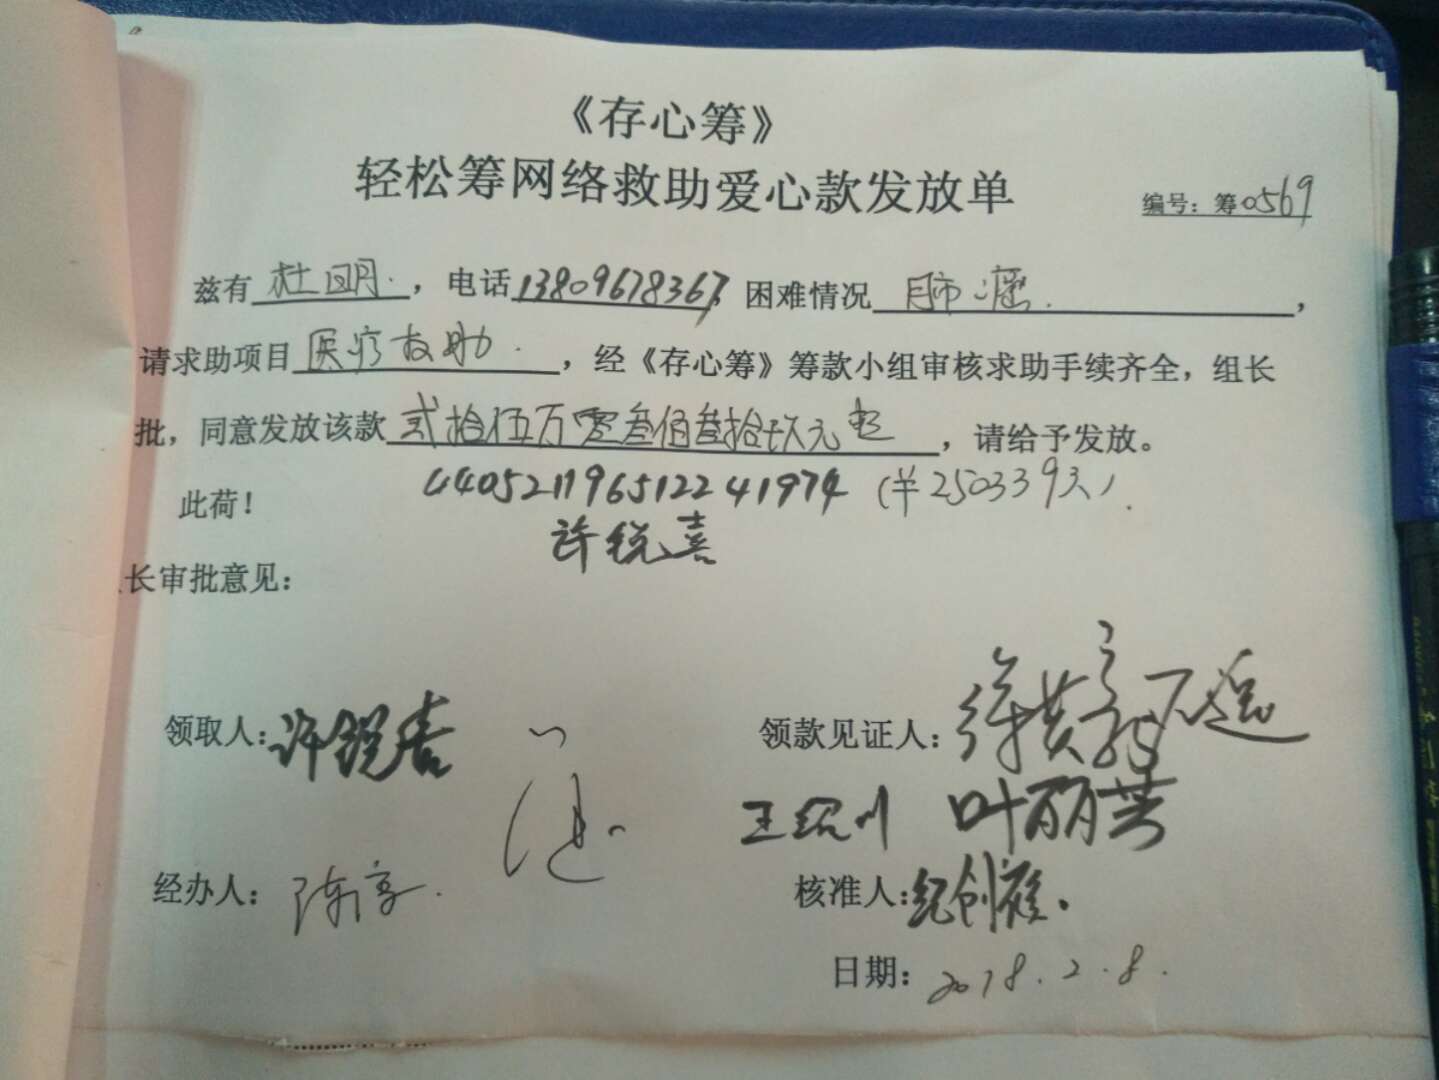 《存心筹》
轻松筹网络救助爱心款发放单
编号：筹0569
兹有杜明，电话13809678367，困难情况肺癌，
请求助项目医疗救助，经《存心筹》筹款小组审核求助手续齐全，组长
批，同意发放该款贰拾伍万零叁佰叁拾玖元正，请给予发放。
此荷！
440521196512241974（￥250339元）
许锐喜
长审批意见：
领取人：许锐喜
领款见证人：
叶丽
经办人：陈
核准人：纪创雄
日期：2018.2.8.